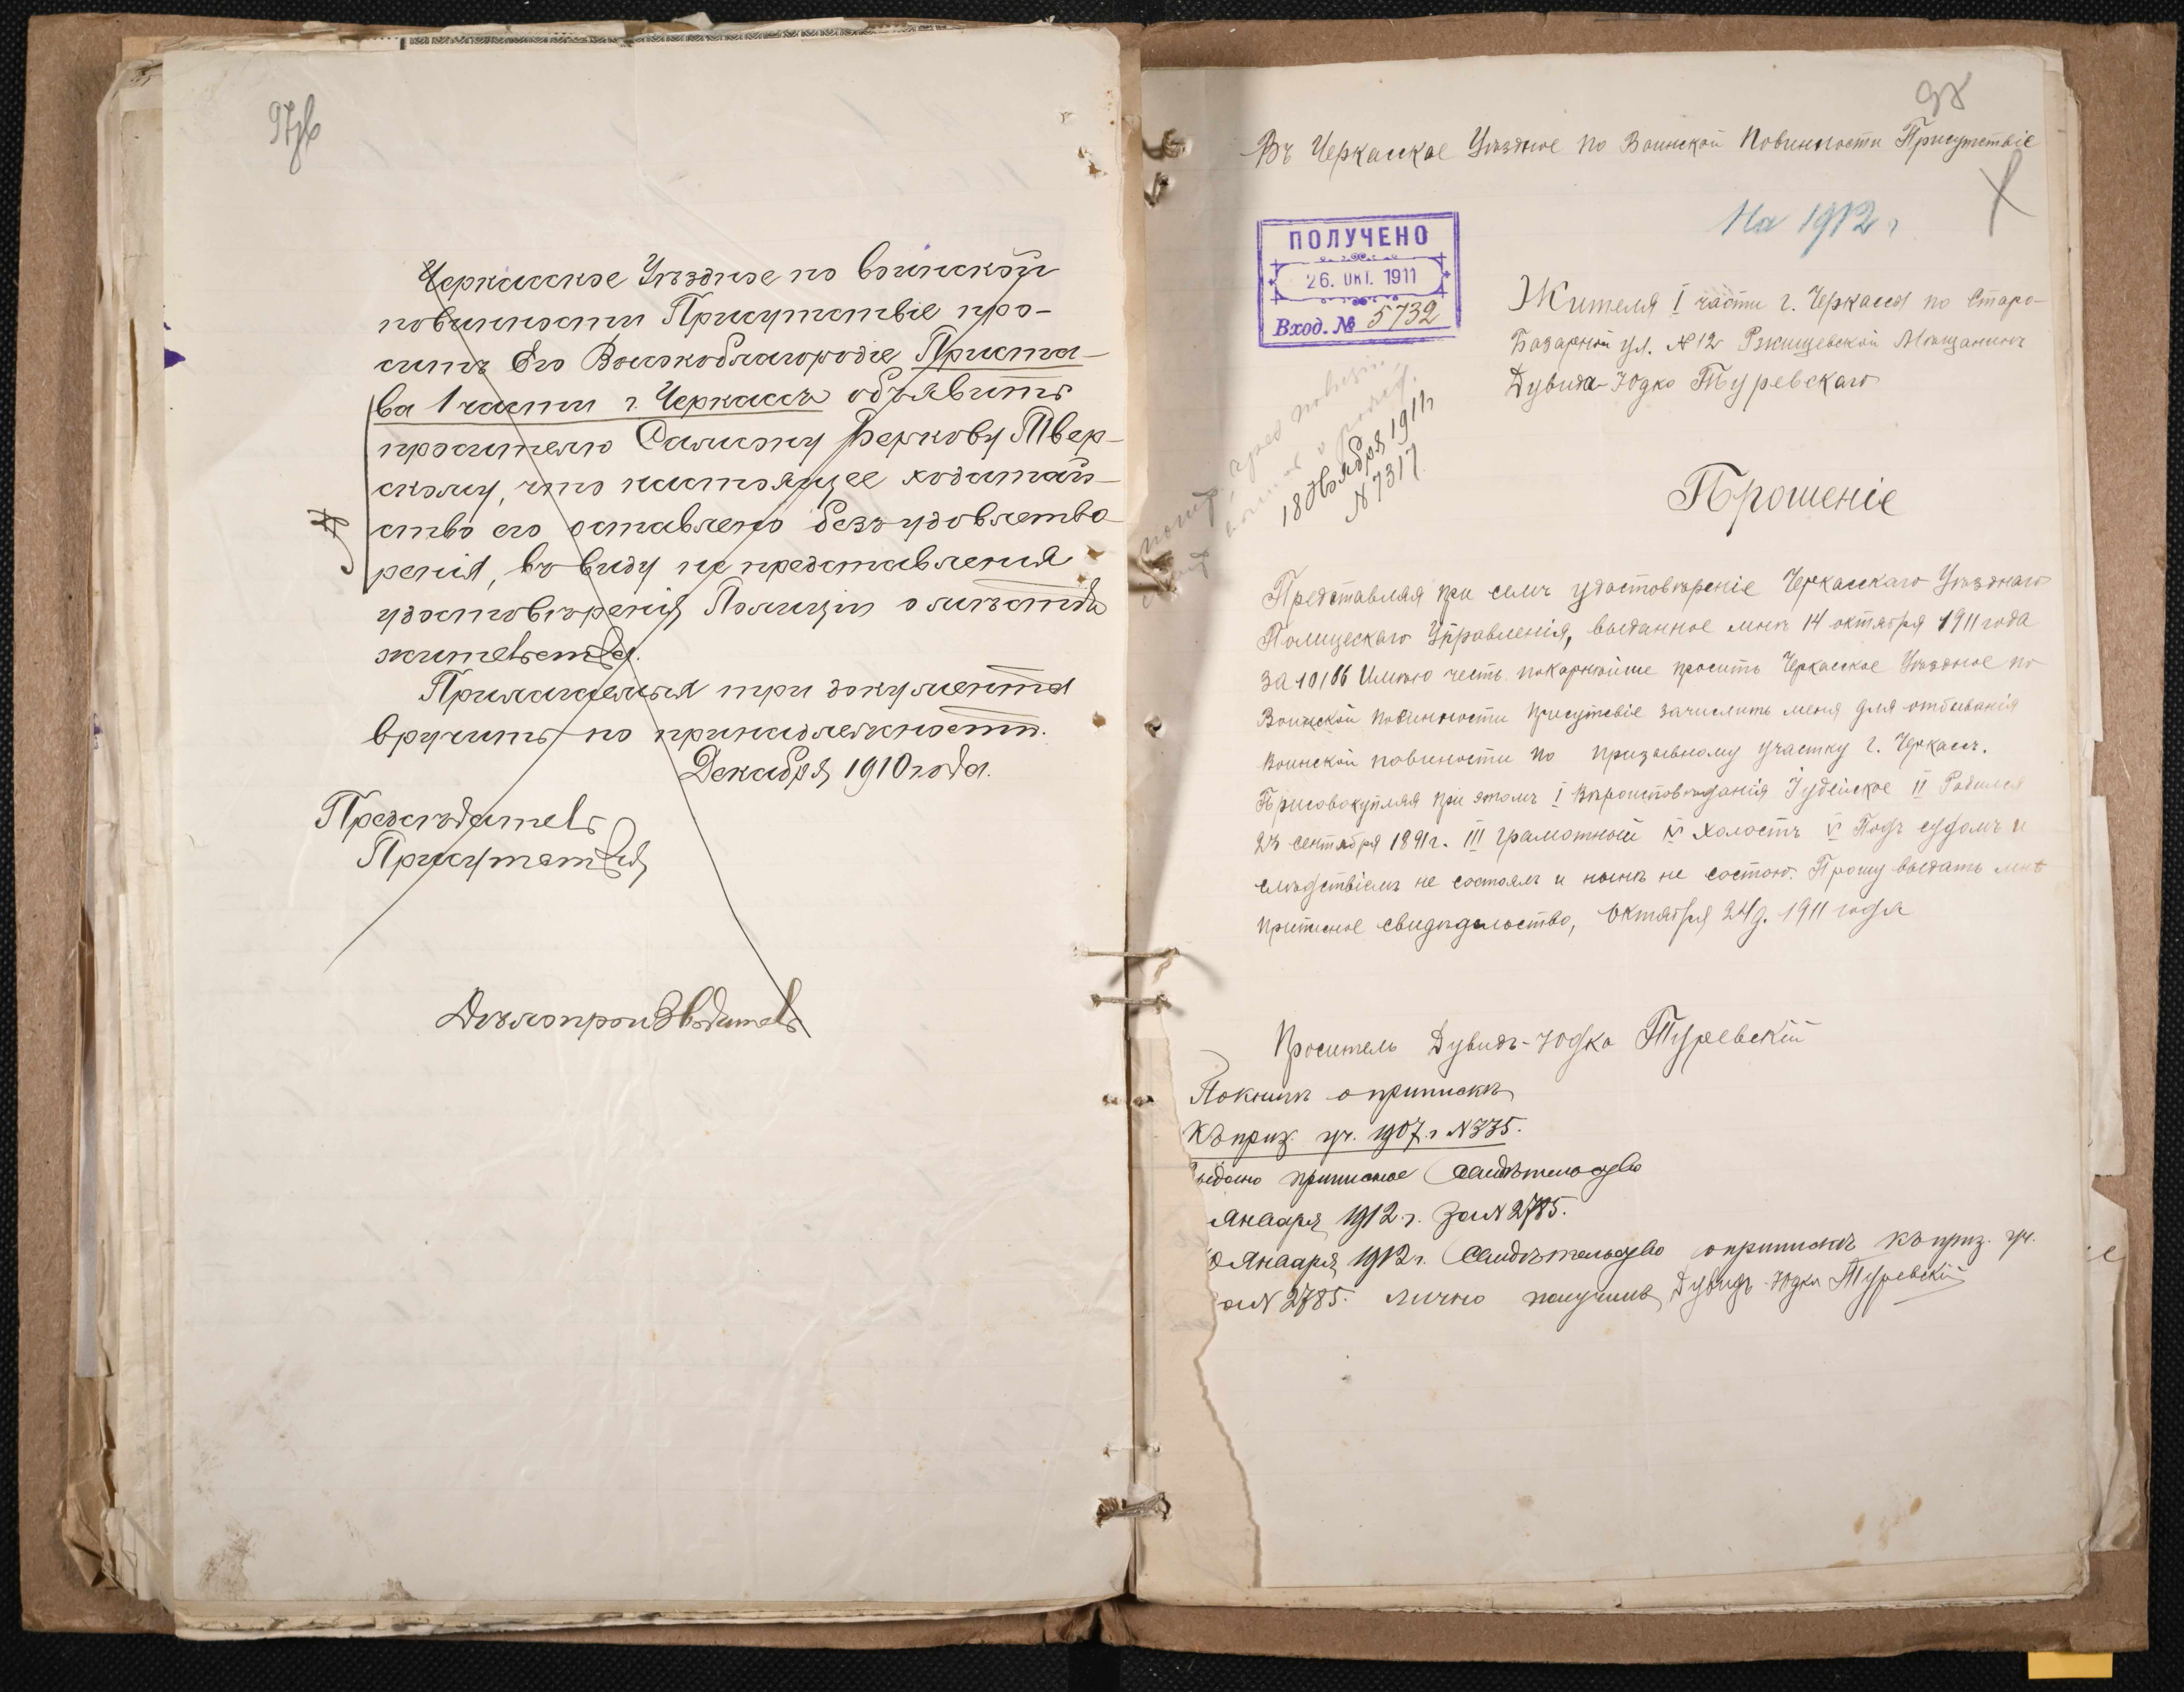 97об
Черкасское Уѣздное по воинской
повинности Присутствіе про-
ситъ Его Высокоблагородіе Приста-
ва 1 части г. Черкассъ объявить
просителю Беркову Твер-
скому, что настоящее ходатай-
ство его оставлено безъ удовлетво-
ренія, въ виду не представленія
удостовѣренія Полиціи о мѣстѣ
жительства.
Прилагаемыя три документа
вручить по принадлежности.
Декабря 1910 года.
Предсѣдатель
Присутствія
Дѣлопроизводитель
98
Въ Черкасское Уѣздное по Воинской Повинности Присутствіе
На 1912 г
ПОЛУЧЕНО
26. ОКТ. 1911
Вход. № 5732
Жителя I части г. Черкассы по Старо-
Базарной ул. №12 Ржищевской Мѣщанинъ
Дувида-Юдко Туревскаго
18 Ноября 1911 г
N 7317
Прошеніе
Представляя при семъ удостовѣреніе Черкасскаго Уѣзднаго
Полицескаго Управленія, выданное мнѣ 14 октября 1911 года
за 10186 Имѣю честь покорнѣйше просить Черкасское Уѣздное по
Воинской повинности Присутсвіе зачислить меня для отбыванія
воинской повиности по призывному участку г. Черкассъ.
Присовокупляя при этомъ I Вѣроисповѣданія Іудейское II Родился
23 сентября 1891 г. III грамотный IV холостъ V Подъ судомъ и
слѣдствіемъ не состоялъ и нынѣ не состою. Прошу выдать мнѣ
приписное свидѣдельство, Октября 24 д. 1911 года
Проситель Дувидъ-Юдко Туревскій
По книгѣ о припискѣ
къ приз. уч. 1907 г N 335.
ыдано приписное свидѣтельство
Января 1912 г. за N 2785.
Января 1912 г. Свидѣтельство о припискѣ къ приз. уч.
за N 2785. лично получилъ Дувидъ-Юдко Туревскій